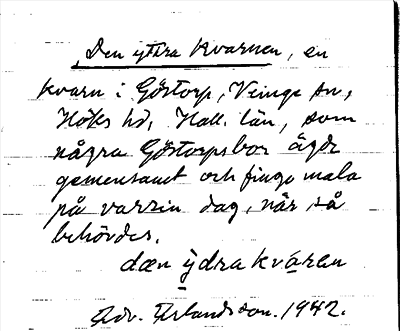 „Den yttra kvarnen, en
kvarn i Göstorp, Veinge sn,
Höks hd, Hall. län, som
några Göstorpsbor ägde
gemensamt och fingo mala
på varsin dag, när så
behövdes.
dæn ỳdra kváren
Adv. Erlandsson. 1942.